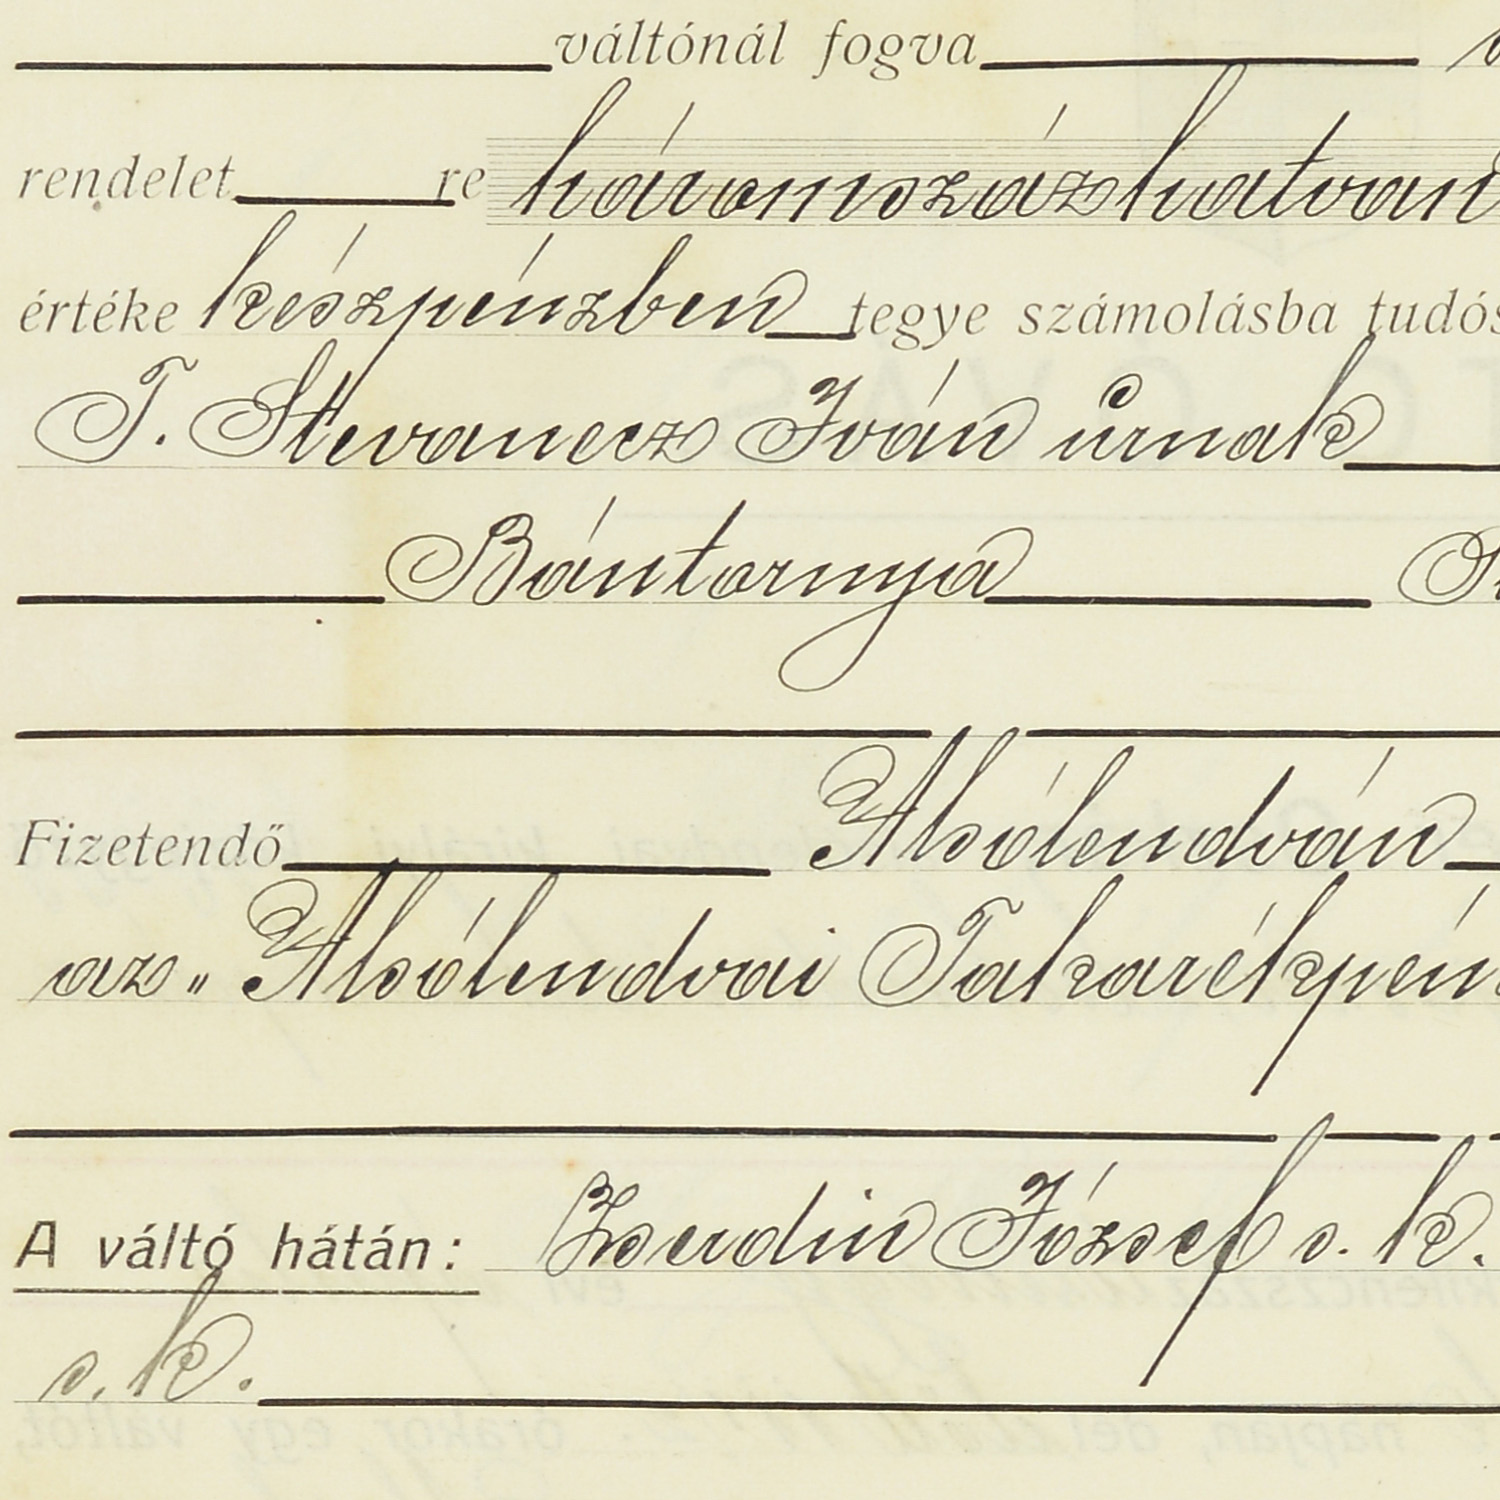 váltónál fogva
rendelet re háromszázhatvan
értéke készpénzben tegye számolásba
T. Stevanecz Iván úrnak
Bántornya
Fizetendő Alsólendván
az „ Alsólendvai Takarékpén
A váltó hátán: Zserdin József s. k.
s. k.